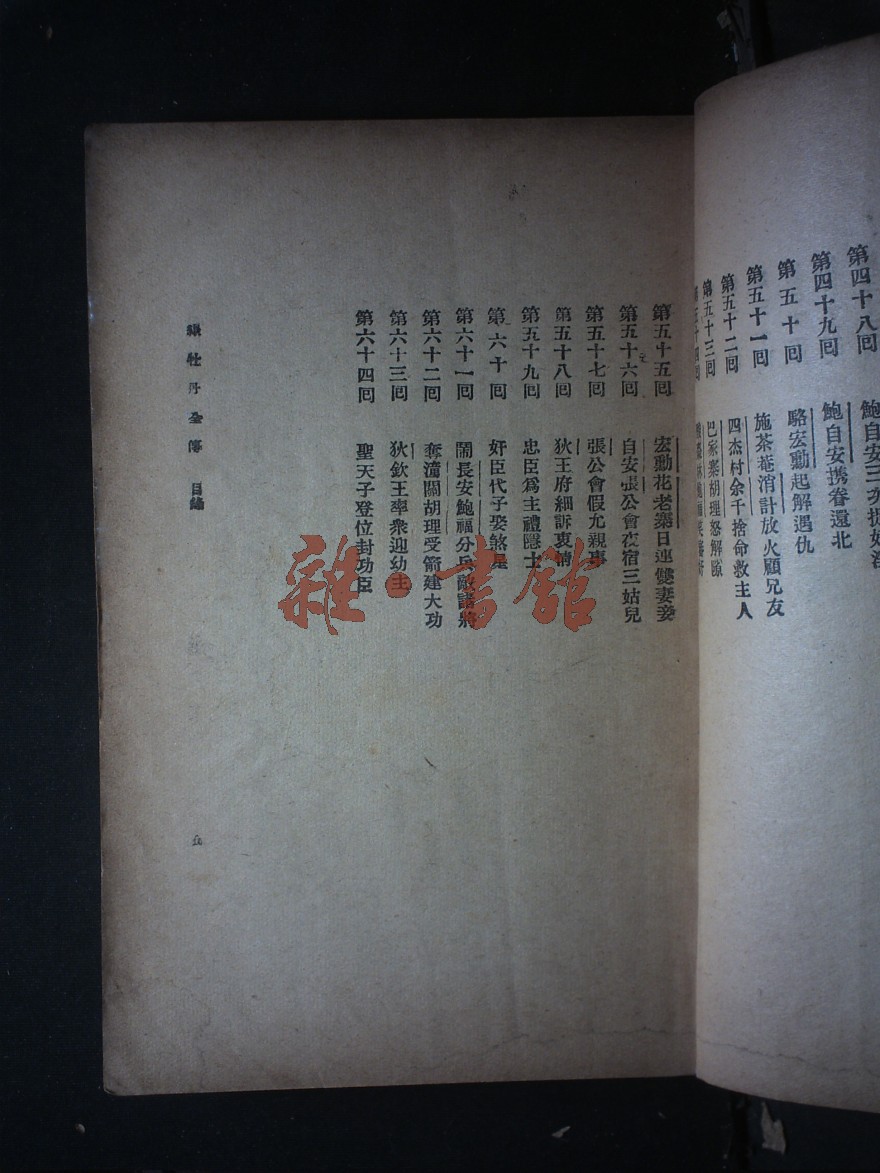 第四十八回 鮑自安三次捉奸淫
第四十九回 鮑自安攜眷還北
第五十回 駱宏勳起解遇仇
第五十一回 施茶菴消計放火顧兄友
第五十二回 四杰村余千捨命救主人
第五十三回 巴家寨胡理怒解隙
第五十四回
第五十五回 宏勳花老寨日連雙妻妾
第五十六回 自安張公會夜宿三姑兒
第五十七回 張公會假允親事
第五十八回 狄王府細訴衷情
第五十九回 忠臣爲主禮隱士
第六十回 奸臣代子娶煞星
第六十一回 鬧長安鮑福分兵敵諸將
第六十二回 奪潼關胡理受箭建大功
第六十三回 狄欽王率衆迎幼主
第六十四回 聖天子登位封功臣
綠牡丹全傳 目錄
五
雜·書館